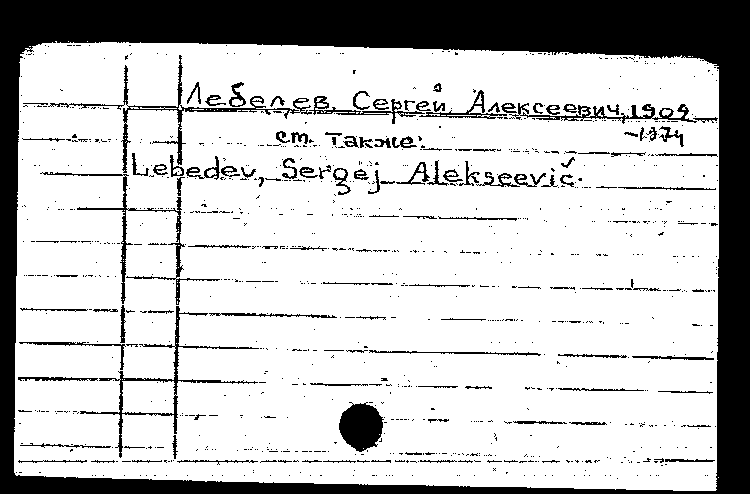 Лебедев, Сергей Алексеевич, 1909
-1974
см. также:
Lebedev, Sergej Alekseevič.